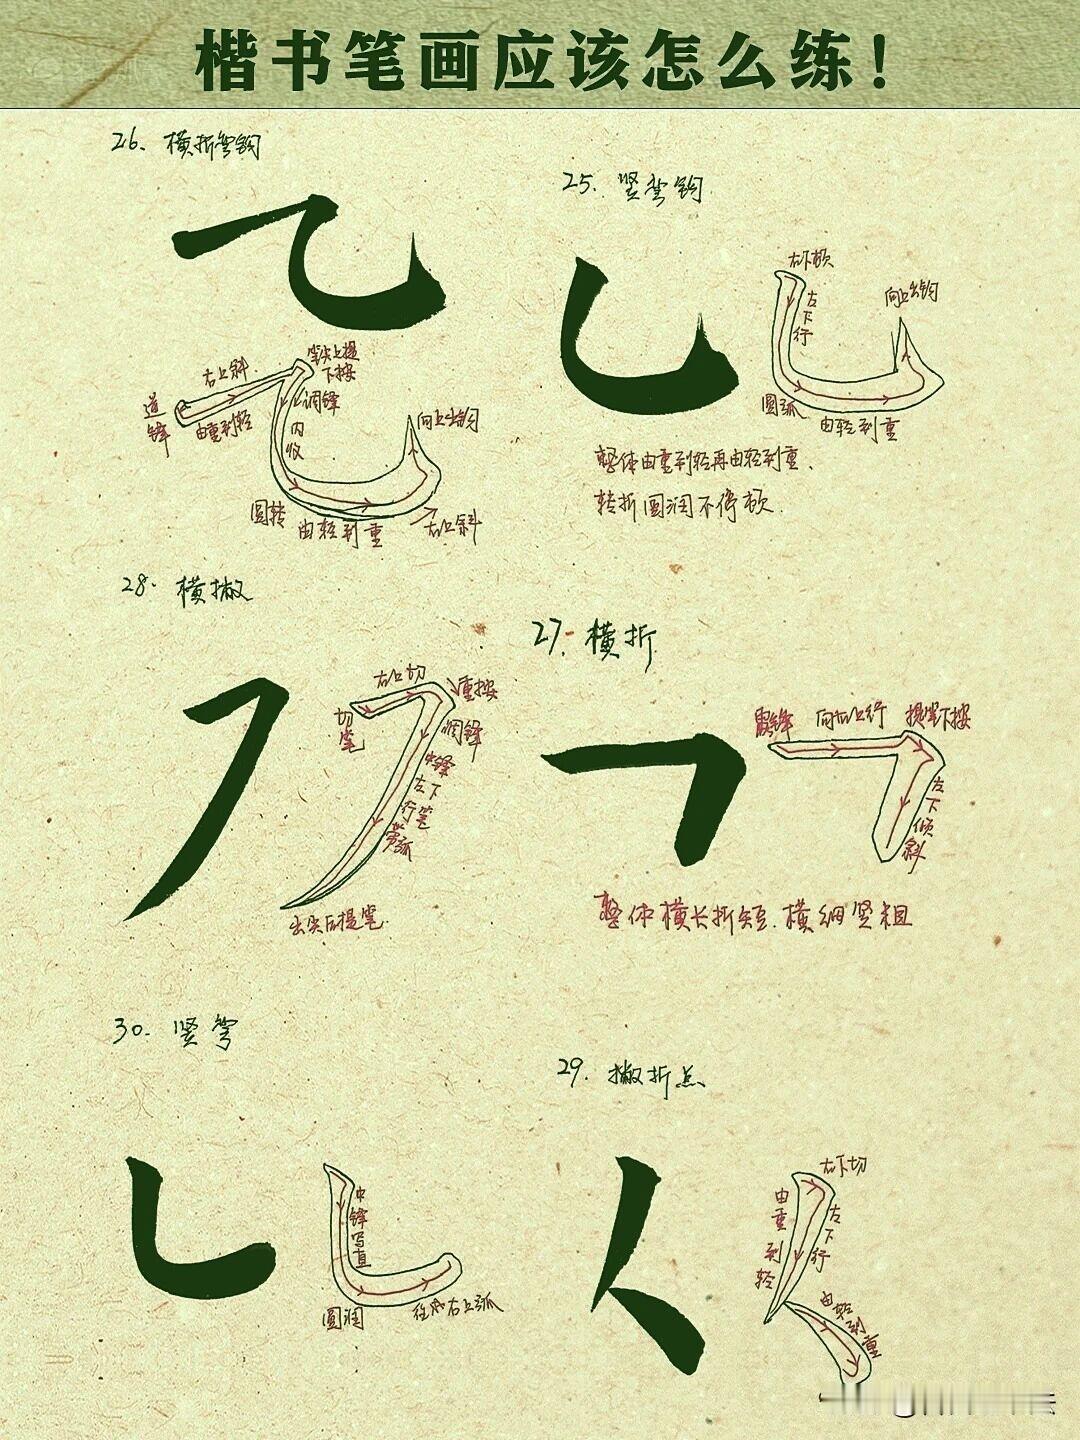 楷书笔画应该怎么练！
26. 横折弯钩
右上斜
笔尖上提
下按
逆锋
由重到轻
调锋
内收
向上出钩
圆转
由轻到重
右上斜
25. 竖弯钩
右下顿
左下行
向上出钩
圆弧
由轻到重
整体由重到轻再由轻到重.
转折圆润不停顿.
28. 横撇
右上切
重按
切笔
调锋
中锋
左下行笔
带弧
出尖后提笔
27. 横折
露锋
向右上行
提笔下按
左下倾斜
整体横长折短.横细竖粗
30. 竖弯
中锋写直
圆润
往右上弧
29. 撇折点
右下切
由重到轻
左下行
由轻到重